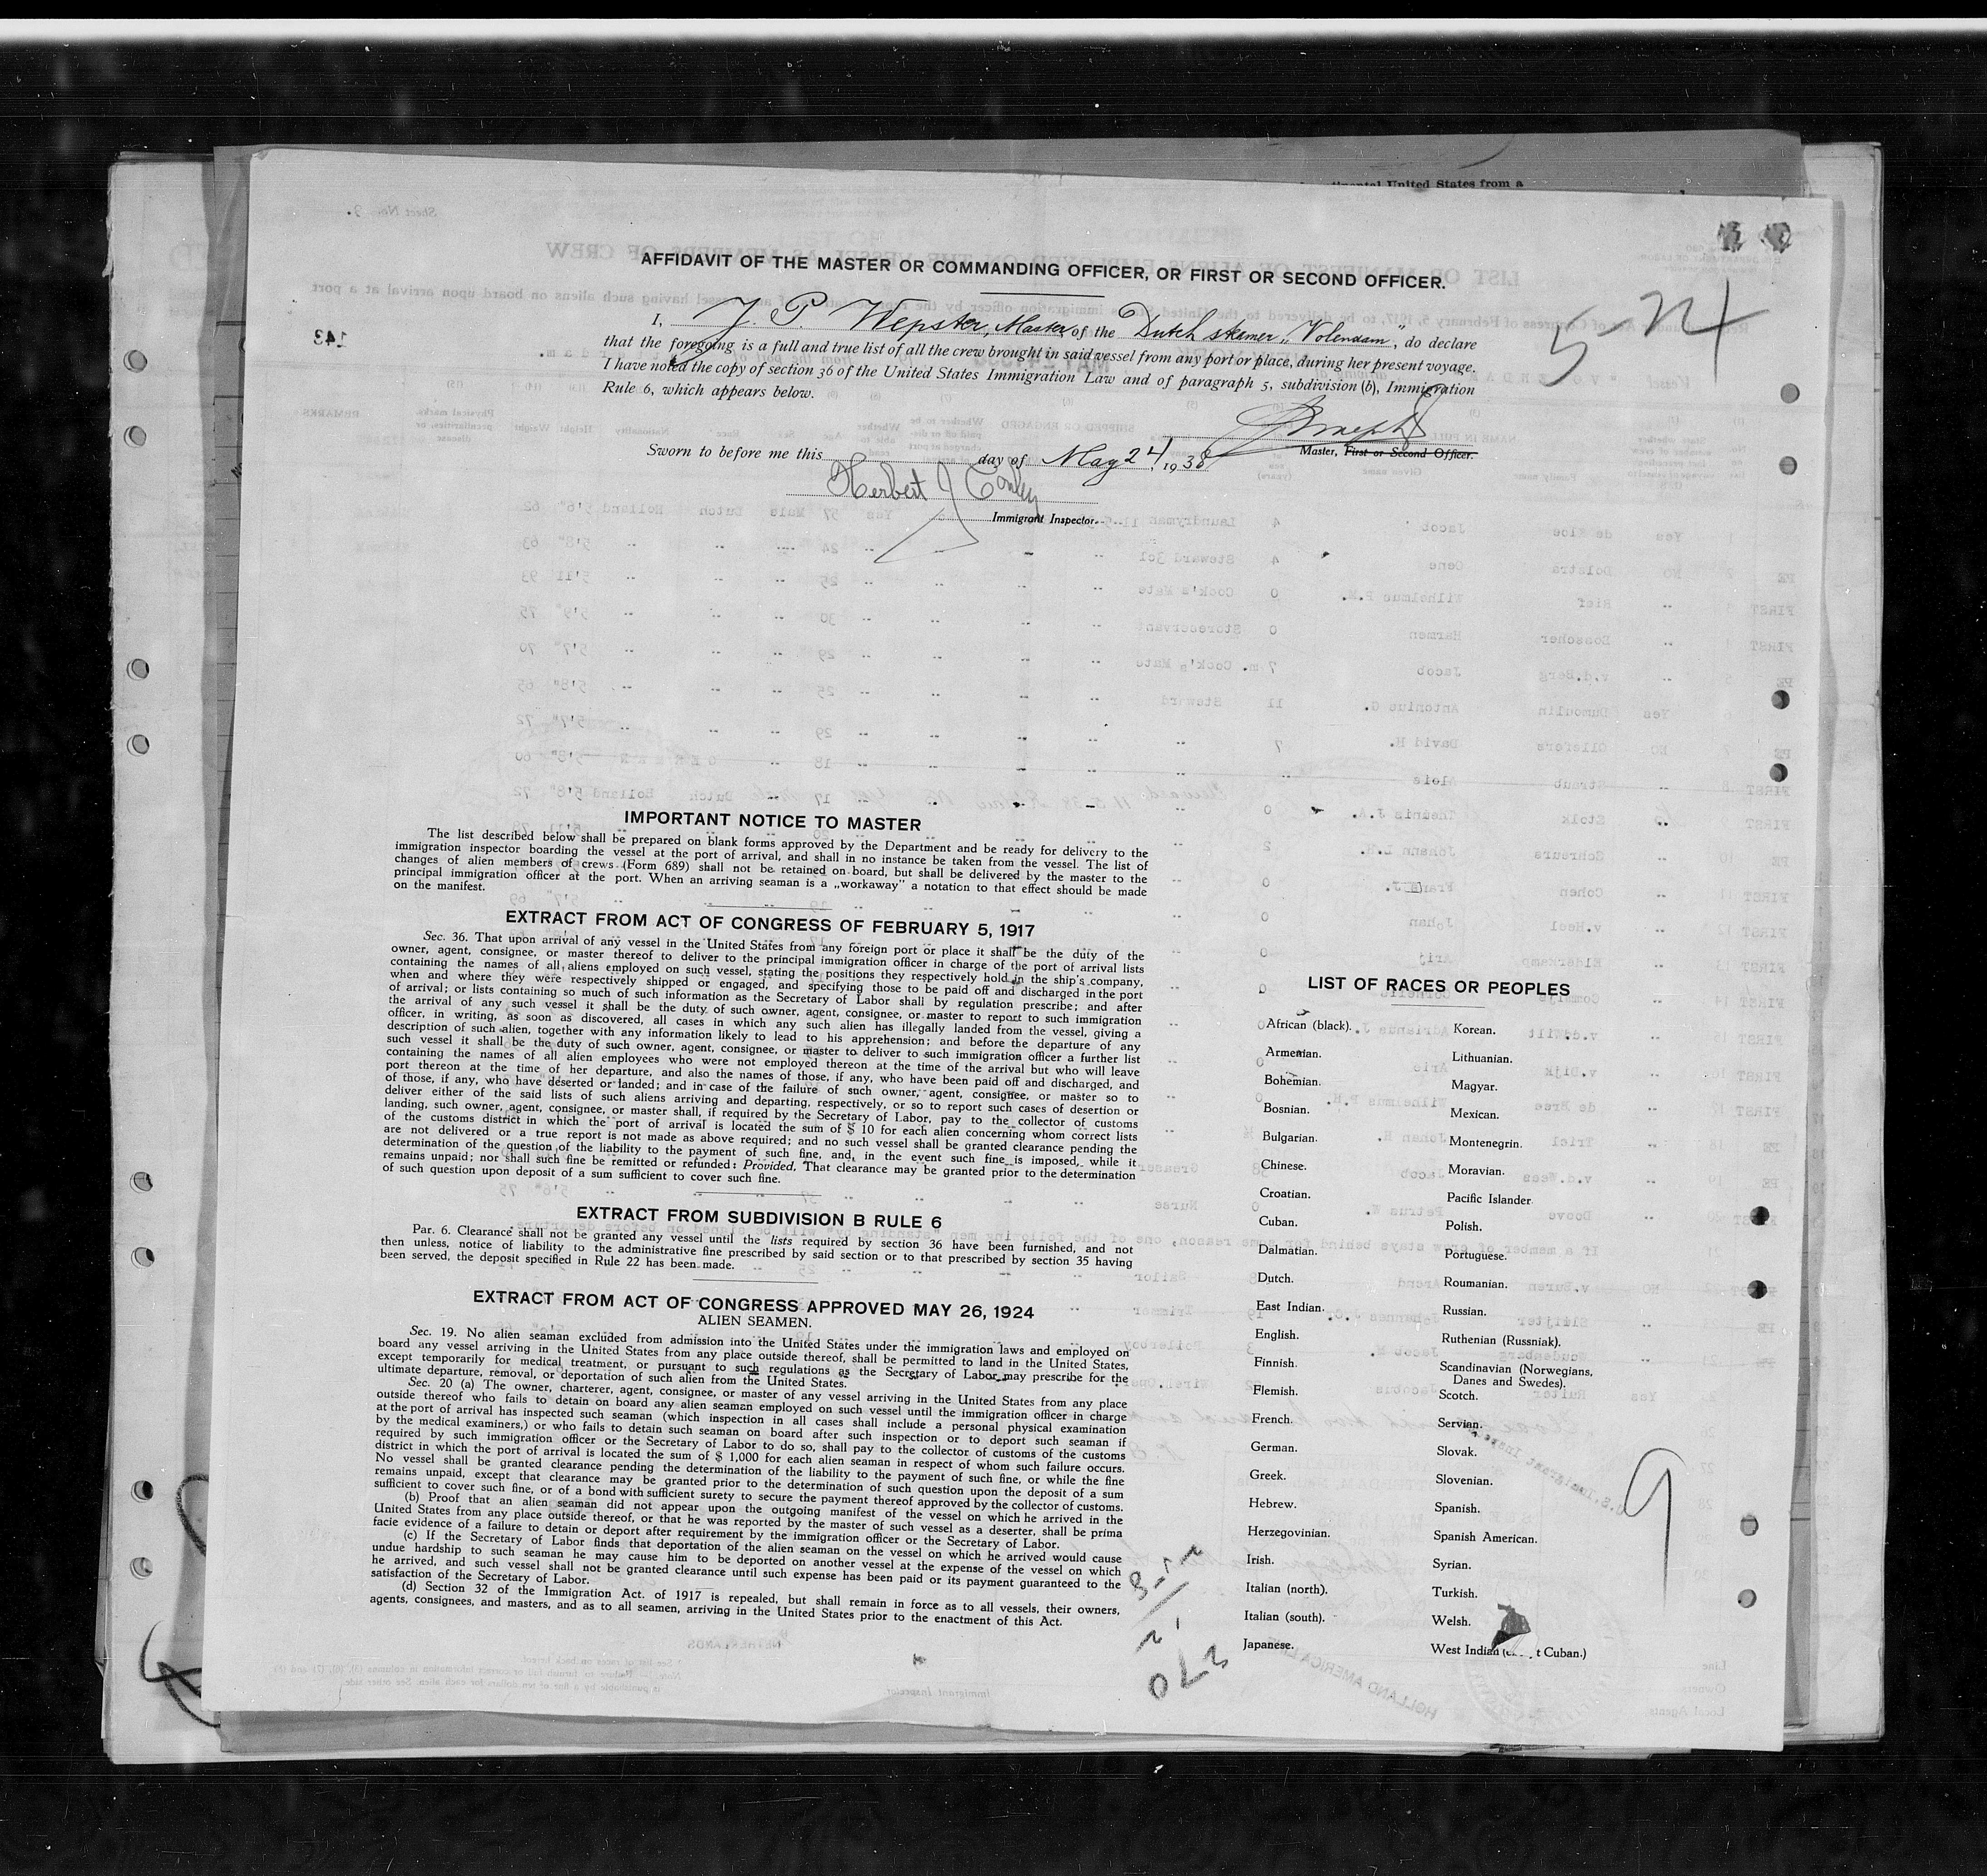 tinental United States from a
AFFIDAVIT OF THE MASTER OR COMMANDING OFFICER, OR FIRST OR SECOND OFFICER.
5-24
I, J. P. Wepster, Master of the Dutch steamer „Volendam", do declare
that the foregoing is a full and true list of all the crew brought in said vessel from any port or place, during her present voyage.
I have noted the copy of section 36 of the United States Immigration Law and of paragraph 5, subdivision (b), Immigration
Rule 6, which appears below.
Sworn to before me this day of May 24, 1938
Master, First or Second Officer.
Herbert J Conley
Immigrant Inspector.
IMPORTANT NOTICE TO MASTER
The list described below shall be prepared on blank forms approved by the Department and be ready for delivery to the
immigration inspector boarding the vessel at the port of arrival, and shall in no instance be taken from the vessel. The list of
changes of alien members of crews (Form 689) shall not be retained on board, but shall be delivered by the master to the
principal immigration officer at the port. When an arriving seaman is a „workaway" a notation to that effect should be made
on the manifest.
EXTRACT FROM ACT OF CONGRESS OF FEBRUARY 5, 1917
Sec. 36. That upon arrival of any vessel in the United States from any foreign port or place it shall be the duty of the
owner, agent, consignee, or master thereof to deliver to the principal immigration officer in charge of the port of arrival lists
containing the names of all aliens employed on such vessel, stating the positions they respectively hold in the ship's company,
when and where they were respectively shipped or engaged, and specifying those to be paid off and discharged in the port
of arrival; or lists containing so much of such information as the Secretary of Labor shall by regulation prescribe; and after
the arrival of any such vessel it shall be the duty of such owner, agent, consignee, or master to report to such immigration
officer, in writing, as soon as discovered, all cases in which any such alien has illegally landed from the vessel, giving a
description of such alien, together with any information likely to lead to his apprehension; and before the departure of any
such vessel it shall be the duty of such owner, agent, consignee, or master to deliver to such immigration officer a further list
containing the names of all alien employees who were not employed thereon at the time of the arrival but who will leave
port thereon at the time of her departure, and also the names of those, if any, who have been paid off and discharged, and
of those, if any, who have deserted or landed; and in case of the failure of such owner, agent, consignee, or master so to
deliver either of the said lists of such aliens arriving and departing, respectively, or so to report such cases of desertion or
landing, such owner, agent, consignee, or master shall, if required by the Secretary of Labor, pay to the collector of customs
of the customs district in which the port of arrival is located the sum of $ 10 for each alien concerning whom correct lists
are not delivered or a true report is not made as above required; and no such vessel shall be granted clearance pending the
determination of the question of the liability to the payment of such fine, and, in the event such fine is imposed, while it
remains unpaid; nor shall such fine be remitted or refunded: Provided, That clearance may be granted prior to the determination
of such question upon deposit of a sum sufficient to cover such fine.
EXTRACT FROM SUBDIVISION B RULE 6
Par. 6. Clearance shall not be granted any vessel until the lists required by section 36 have been furnished, and not
then unless, notice of liability to the administrative fine prescribed by said section or to that prescribed by section 35 having
been served, the deposit specified in Rule 22 has been made.
EXTRACT FROM ACT OF CONGRESS APPROVED MAY 26, 1924
ALIEN SEAMEN.
Sec. 19. No alien seaman excluded from admission into the United States under the immigration laws and employed on
board any vessel arriving in the United States from any place outside thereof, shall be permitted to land in the United States,
except temporarily for medical treatment, or pursuant to such regulations as the Secretary of Labor may prescribe for the
ultimate departure, removal, or deportation of such alien from the United States.
Sec. 20 (a) The owner, charterer, agent, consignee, or master of any vessel arriving in the United States from any place
outside thereof who fails to detain on board any alien seaman employed on such vessel until the immigration officer in charge
at the port of arrival has inspected such seaman (which inspection in all cases shall include a personal physical examination
by the medical examiners,) or who fails to detain such seaman on board after such inspection or to deport such seaman if
required by such immigration officer or the Secretary of Labor to do so, shall pay to the collector of customs of the customs
district in which the port of arrival is located the sum of $ 1,000 for each alien seaman in respect of whom such failure occurs.
No vessel shall be granted clearance pending the determination of the liability to the payment of such fine, or while the fine
remains unpaid, except that clearance may be granted prior to the determination of such question upon the deposit of a sum
sufficient to cover such fine, or of a bond with sufficient surety to secure the payment thereof approved by the collector of customs.
(b) Proof that an alien seaman did not appear upon the outgoing manifest of the vessel on which he arrived in the
United States from any place outside thereof, or that he was reported by the master of such vessel as a deserter, shall be prima
facie evidence of a failure to detain or deport after requirement by the immigration officer or the Secretary of Labor.
(c) If the Secretary of Labor finds that deportation of the alien seaman on the vessel on which he arrived would cause
undue hardship to such seaman he may cause him to be deported on another vessel at the expense of the vessel on which
he arrived, and such vessel shall not be granted clearance until such expense has been paid or its payment guaranteed to the
satisfaction of the Secretary of Labor.
(d) Section 32 of the Immigration Act. of 1917 is repealed, but shall remain in force as to all vessels, their owners,
agents, consignees, and masters, and as to all seamen, arriving in the United States prior to the enactment of this Act.
LIST OF RACES OR PEOPLES
African (black).
Armenian.
Bohemian.
Bosnian.
Bulgarian.
Chinese.
Croatian.
Cuban.
Dalmatian.
Dutch.
East Indian.
English.
Finnish.
Flemish.
French.
German.
Greek.
Hebrew.
Herzegovinian.
Irish.
Italian (north).
Italian (south).
Japanese.
Korean.
Lithuanian.
Magyar.
Mexican.
Montenegrin.
Moravian.
Pacific Islander
Polish.
Portuguese.
Roumanian.
Russian.
Ruthenian (Russniak).
Scandinavian (Norwegians,
Danes and Swedes).
Scotch.
Servian.
Slovak.
Slovenian.
Spanish.
Spanish American.
Syrian.
Turkish.
Welsh.
West Indian Cuban.)
9